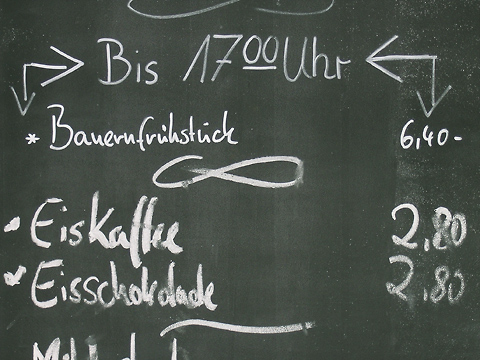 Bis 17⁰⁰ Uhr
* Bauernfrühstück 6,40-
Eiskaffee 2,80
Eisschokolade 2,80